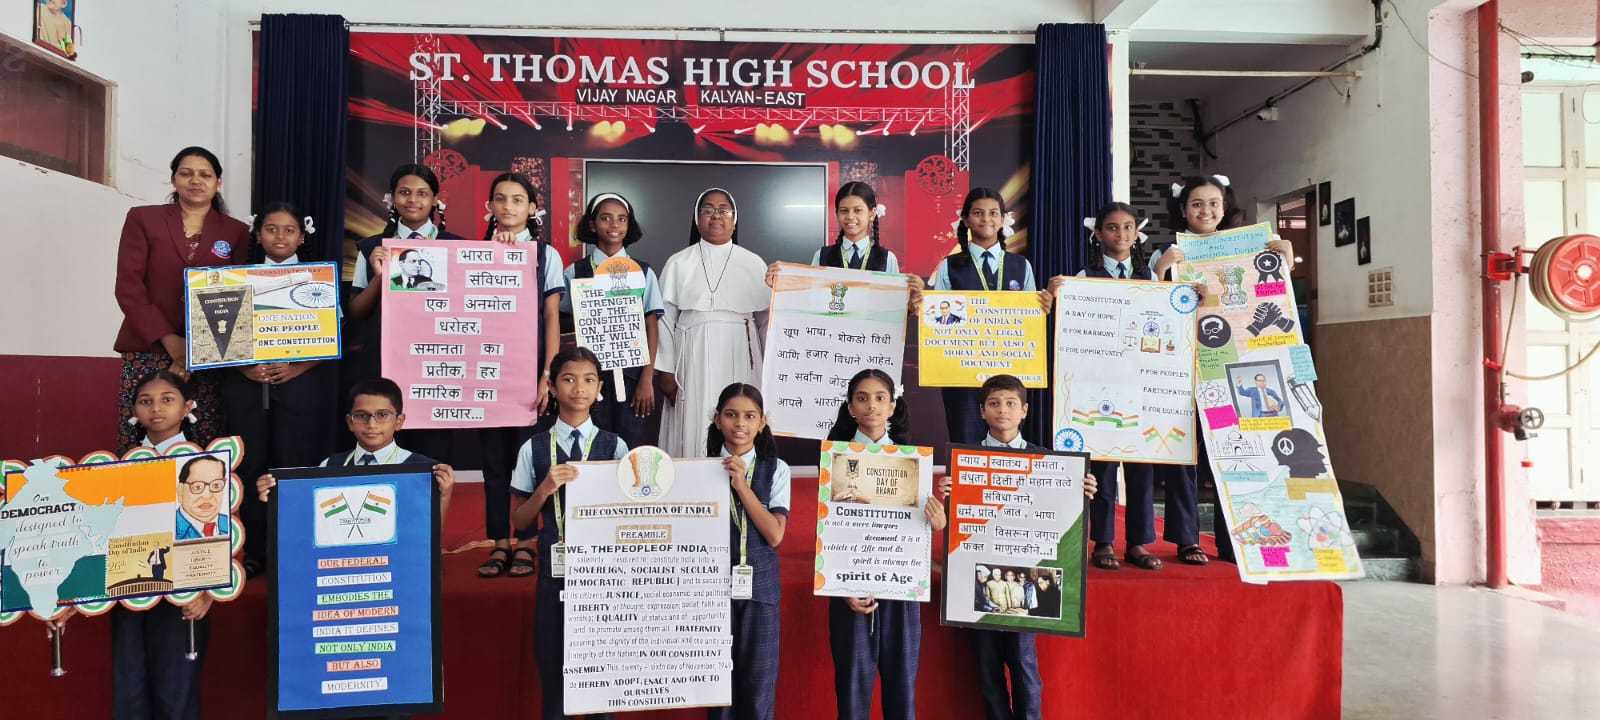 ST. THOMAS HIGH SCHOOL
VIJAY NAGAR KALYAN-EAST
CONSTITUTION
INDIA
ONE NATION
ONE PEOPLE
ONE CONSTITUTION
भारत का
संविधान,
एक अनमोल
धरोहर,
समानता का
प्रतीक, हर
नागरिक का
आधार...
THE
STRENGTH
OF THE
CONSTITUTI
ON, LIES IN
THE WILL
OF THE
PEOPLE TO
DEFEND IT.
खूप भाषा, शेकडो विधी
आणि हजार विधाने आहेत.
या सर्वांना
आपले भारती
आहे
THE
CONSTITUTION
OF INDIA IS
NOT ONLY A LEGAL
DOCUMENT BUT ALSO A
MORAL AND SOCIAL
DOCUMENT.
OUR CONSTITUTION IS
A RAY OF HOPE,
FOR HARMONY,
FOR OPPORTUNITY
P FOR PEOPLE'S
PARTICIPATION
E FOR EQUALITY
INDIAN CONSTITUTION
AND
FUNDAMENTAL DUTIES
Our
DEMOCRACY is
designed to
speak truth
to
power
Constitution
Day of India
26th
JUSTICE
LIBERTY
EQUALITY
FRATERNITY
OUR FEDERAL
CONSTITUTION
EMBODIES THE
IDEA OF MODERN
INDIA IT DEFINES
NOT ONLY INDIA
BUT ALSO
MODERNITY.
THE CONSTITUTION OF INDIA
PREAMBLE
WE, THE PEOPLE OF INDIA having
solemnly resolved to constitute India into a
[SOVEREIGN, SOCIALIST SECULAR
DEMOCRATIC REPUBLIC] and to secure to
all its citizens: JUSTICE, social, economic and political;
LIBERTY of thought, expression, belief, faith and
worship; EQUALITY of status and of opportunity;
and to promote among them all FRATERNITY
assuring the dignity of the individual and the unity and
integrity of the Nation; IN OUR CONSTITUENT
ASSEMBLY This, twenty-sixth day of November, 1949
do HEREBY ADOPT, ENACT AND GIVE TO
OURSELVES
THIS CONSTITUTION
CONSTITUTION
DAY OF
BHARAT
CONSTITUTION
is not a mere lawyers
document, it is a
vehicle of life and its
spirit is always the
spirit of Age
न्याय, स्वातंत्र्य, समता,
बंधुता, दिली ही महान तत्वे
संविधानाने,
धर्म, प्रांत, जात, भाषा
आपण विसरून जगूया
फक्त माणुसकीने...!